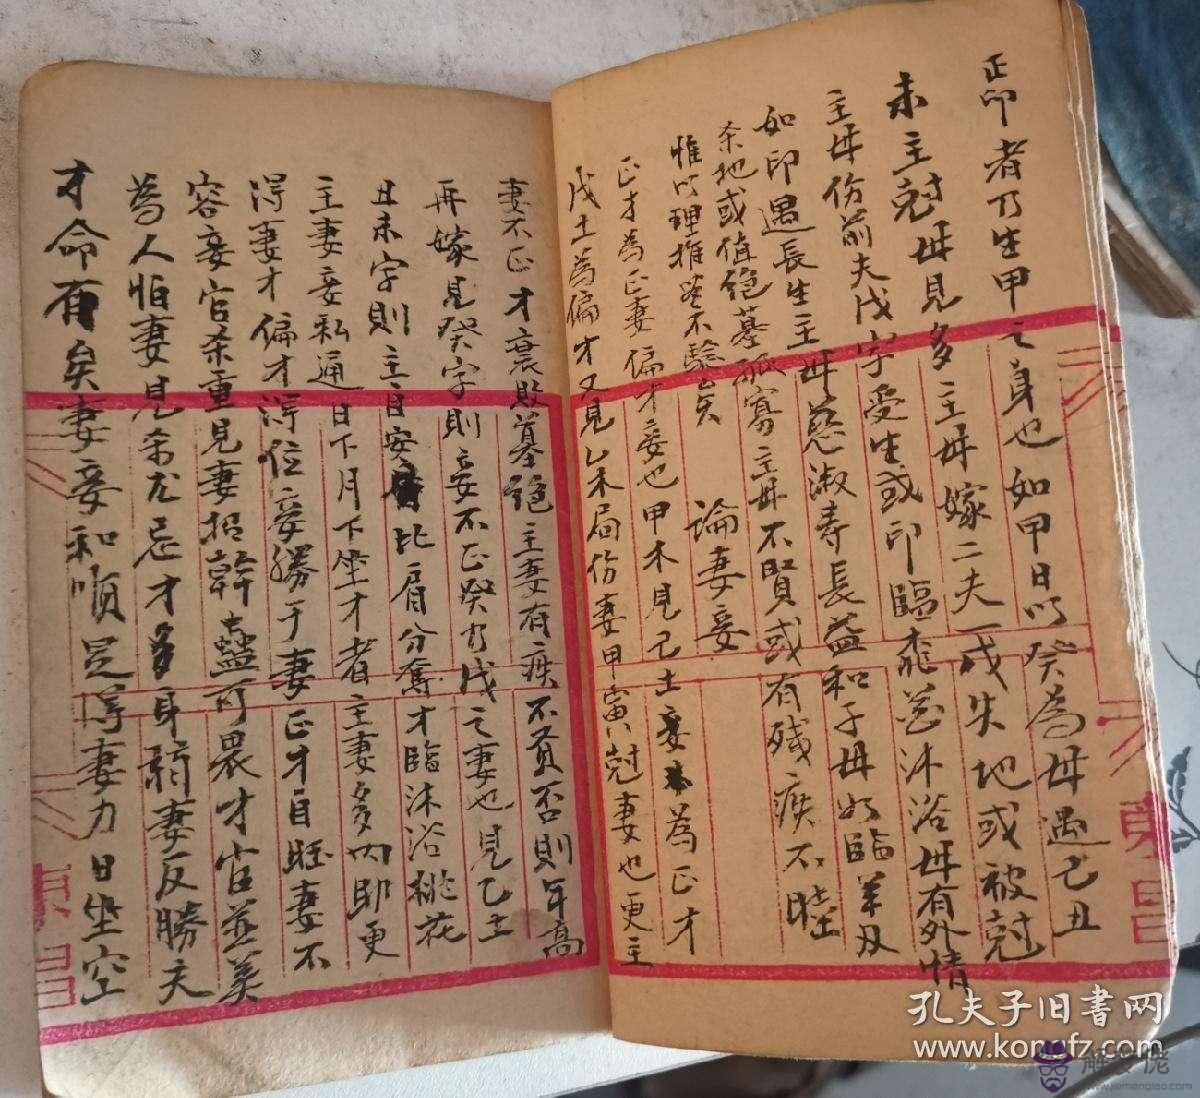 正印者乃生甲之身也如甲日以癸為母遇己丑
未主尅母見多主母嫁二夫一或失地或被尅
主母伤前夫戊字受生或印臨桃花沐浴母有外情
如印遇長生主母慈淑寿長益和子母如臨羊刃
杀地或值绝墓孤寡主母不賢或有残疾不睦
惟以理推莫不驗矣
論妻妾
正才為正妻偏才妾也甲木見己土妻為正才
戊土為偏才又見乙未局伤妻甲寅尅妻也更主
妻不正才衰敗墓绝主妻有疾不贫否則年高
再嫁見癸字則妾不正癸乃戊之妻也見乙土
丑未字則主目安比肩分奪才臨沐浴桃花
主妻妾私通日下月下坐才者主妻多内助更
淂妻才偏才淂位妾勝于妻正才自旺妻不
容妾官杀重見妻招幹蠱可畏才官並美
為人怕妻見杀尤忌才多身弱妻反勝夫
才命有矣妻妾和順足淂妻力日坐空
東昌
孔夫子旧书网
www.kongfz.com
www.jiemenglao.com